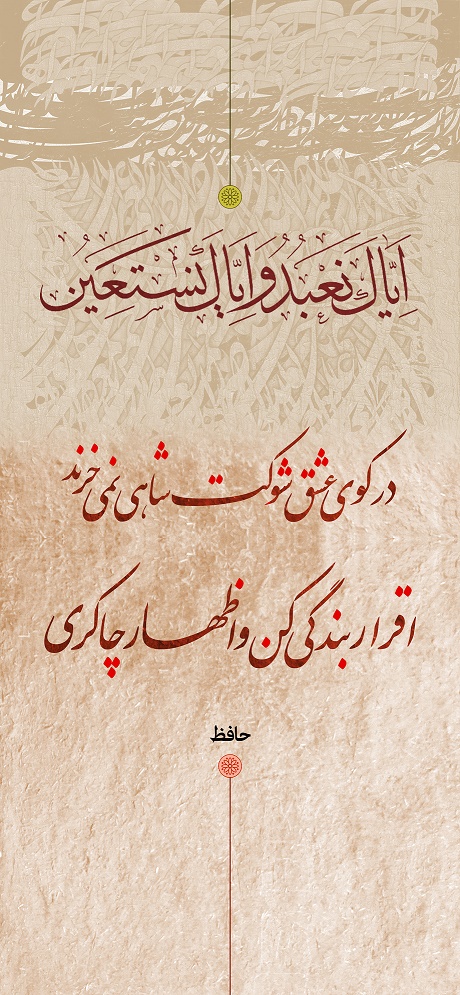 اِیّاكَ نَعبُدُ وَ اِیّاكَ نَستَعِینُ
در کوی عشق شوکت شاهی نمی خرند
اقرار بندگی کن و اظهار چاکری
حافظ